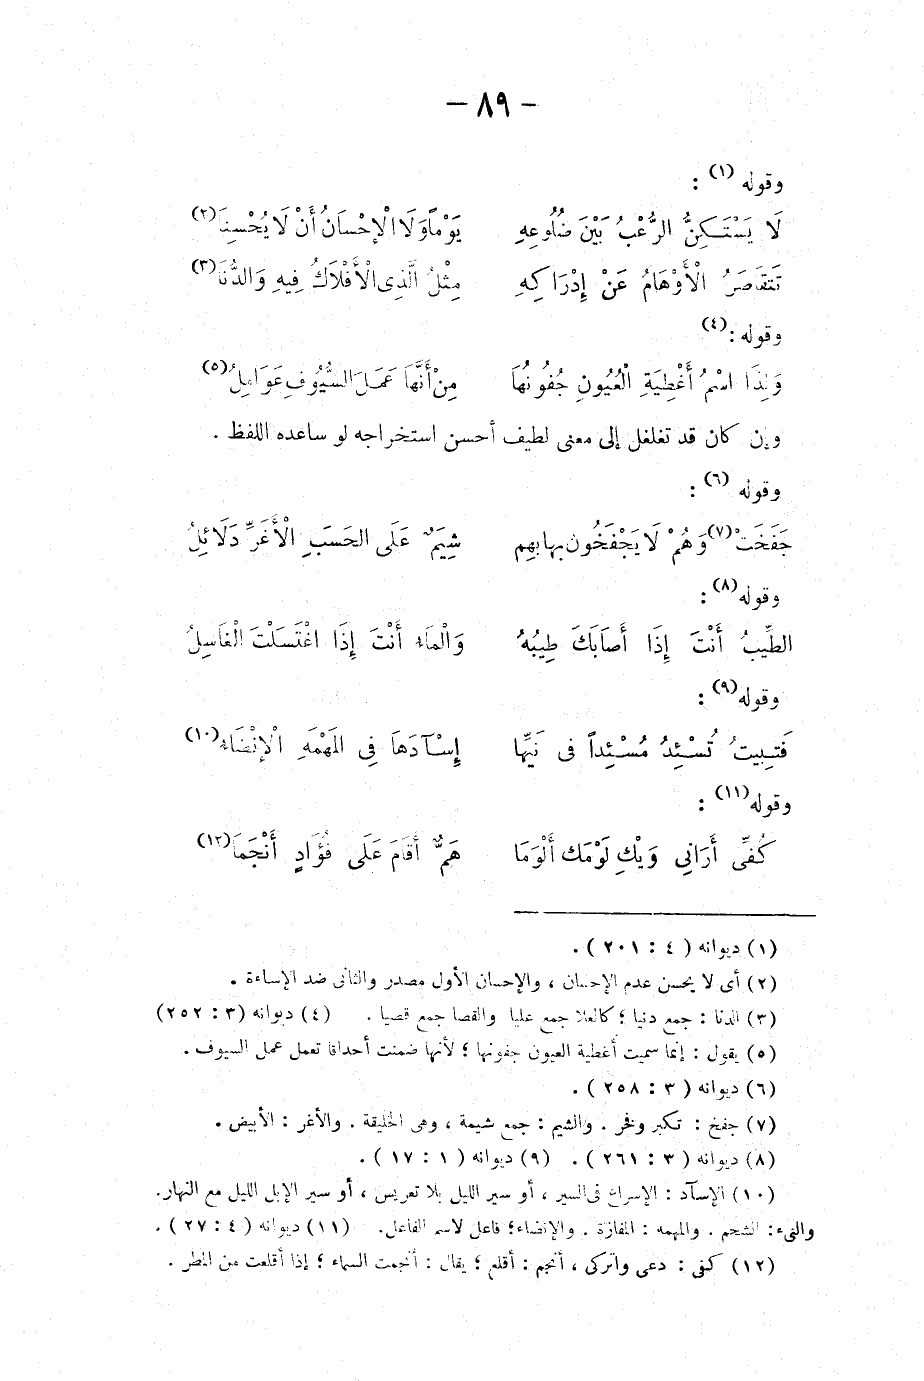 - ٨٩ -
وقوله (١) :
لَا يَسْتَكِنُّ الرُّعْبُ بَيْنَ ضُلُوعِهِ يَوْمًا وَلَا الْإِحْسَانُ أَنْ لَا يُحْسِنَا (٢)
تَتَقَاصَرُ الْأَوْهَامُ عَنْ إِدْرَاكِهِ مِثْلُ الَّذِي الْأَفْلَاكُ فِيهِ وَالدُّنَا (٣)
وقوله : (٤)
وَلِذَا اسْمُ أَغْطِيَةِ الْعُيُونِ جُفُونُهَا مِنْ أَنَّهَا عَمَلَ السُّيُوفِ عَوَامِلُ (٥)
وإن كان قد تغلغل إلى معنى لطيف أحسن استخراجه لو ساعده اللفظ .
وقوله (٦) :
جَفَخَتْ (٧) وَهُمْ لَا يَجْفَخُون بها بهِم شِيَمٌ عَلَى الحَسَبِ الْأَغَرِّ دَلَائِلُ
وقوله (٨) :
الطِّيبُ أَنْتَ إِذَا أَصَابَكَ طِيبُهُ وَالْمَاءُ أَنْتَ إِذَا اغْتَسَلْتَ الْغَاسِلُ
وقوله (٩) :
فَتَبِيتُ تُسْئِدُ مُسْئِداً فى نَيِّها إِسْآدَهَا فِي المَهْمَهِ الْإِنْضَاءُ (١٠)
وقوله (١١) :
كُفِّى أَرَانِى وَيْكِ لَوْمَك أَلْوَمَا هَمٌّ أَقَامَ عَلَى فُؤَادٍ أَنْجَمَا (١٢)
(١) ديوانه ( ٤ : ٢٠١ ) .
(٢) أى لا يحسن عدم الإحسان ، والإحسان الأول مصدر والثانى ضد الإساءة .
(٣) الدنا : جمع دنيا ؛ كالعلا جمع عليا والقصا جمع قصيا . (٤) ديوانه (٣ : ٢٥٢)
(٥) يقول : إنما سميت أغطية العيون جفونها ؛ لأنها ضمنت أحداقا تعمل عمل السيوف .
(٦) ديوانه ( ٣ : ٢٥٨ ) .
(٧) جفخ : تكبر وفخر . والشيم : جمع شيمة ، وهى الخليقة . والأغر : الأبيض .
(٨) ديوانه ( ٣ : ٢٦١ ) . (٩) ديوانه ( ١ : ١٧ ) .
(١٠) الإسآد : الإسراع فى السير ، أو سير الليل بلا تعريس ، أو سير الإبل الليل مع النهار.
والنىء : الشحم . والمهمه : المفازة . والإنضاء؛ فاعل لاسم الفاعل. (١١) ديوانه ( ٤ : ٢٧ ) .
(١٢) كفى : دعى واتركى ، أنجم : أقلع ؛ يقال : أنجمت السماء ؛ إذا أقلعت من المطر .